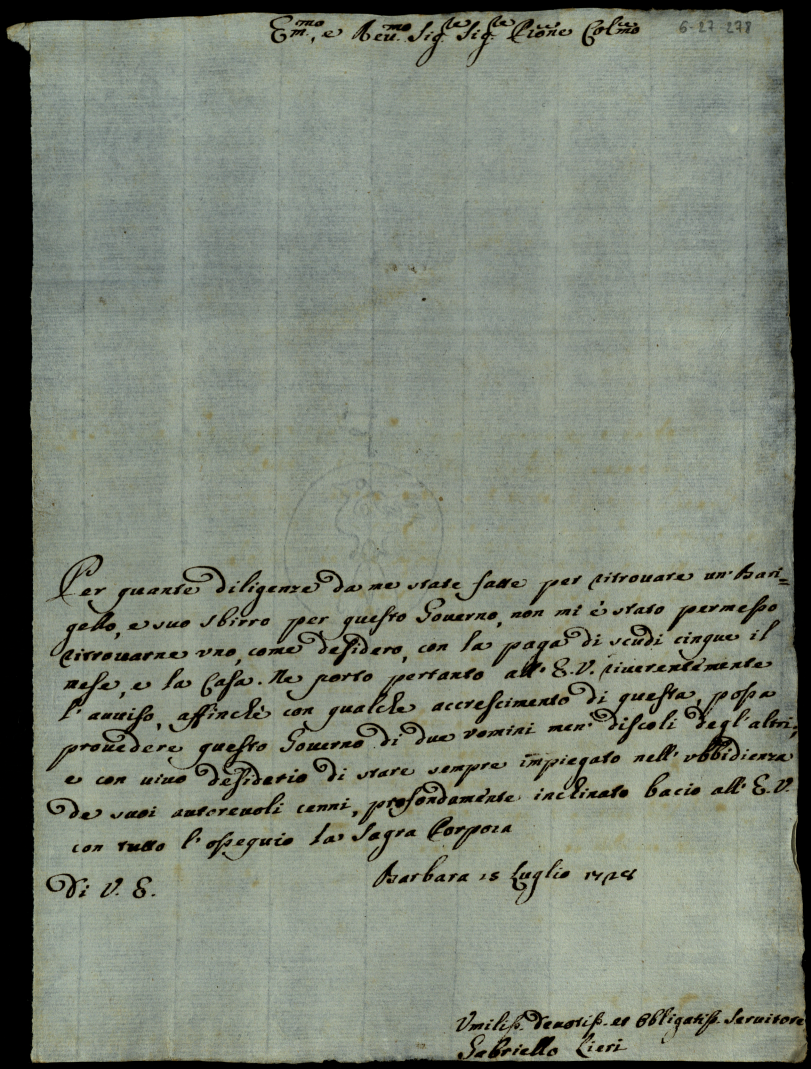 Em.mo, e Reu.mo Sig.re Sig.re P̅rone Col.mo
6-27-278
Per quante diligenze da me state fatte per ritrouare un' Bari=
gello, e suo sbirro per questo Gouerno, non mi è stato permesso
ritrouarne vno, come desidero, con la paga di scudi cinque il
mese, e la Casa. Ne porto pertanto all' E. V. riuerentemente
l' auuiso, affinchè con qualche accrescimento di questa, possa
prouedere questo Gouerno di due vomini men' discoli degl' altri;
e con uiuo desiderio di stare sempre impiegato nell' vbbidienza
de suoi autoreuoli cenni, profondamente inclinato bacio all' E. V.
con tutto l' ossequio la Sagra Porpora
Di V. E.
Barbara 15 Luglio 1728
Vmiliss. Deuotiss. et Obligatiss. Seruitore
Gabriello